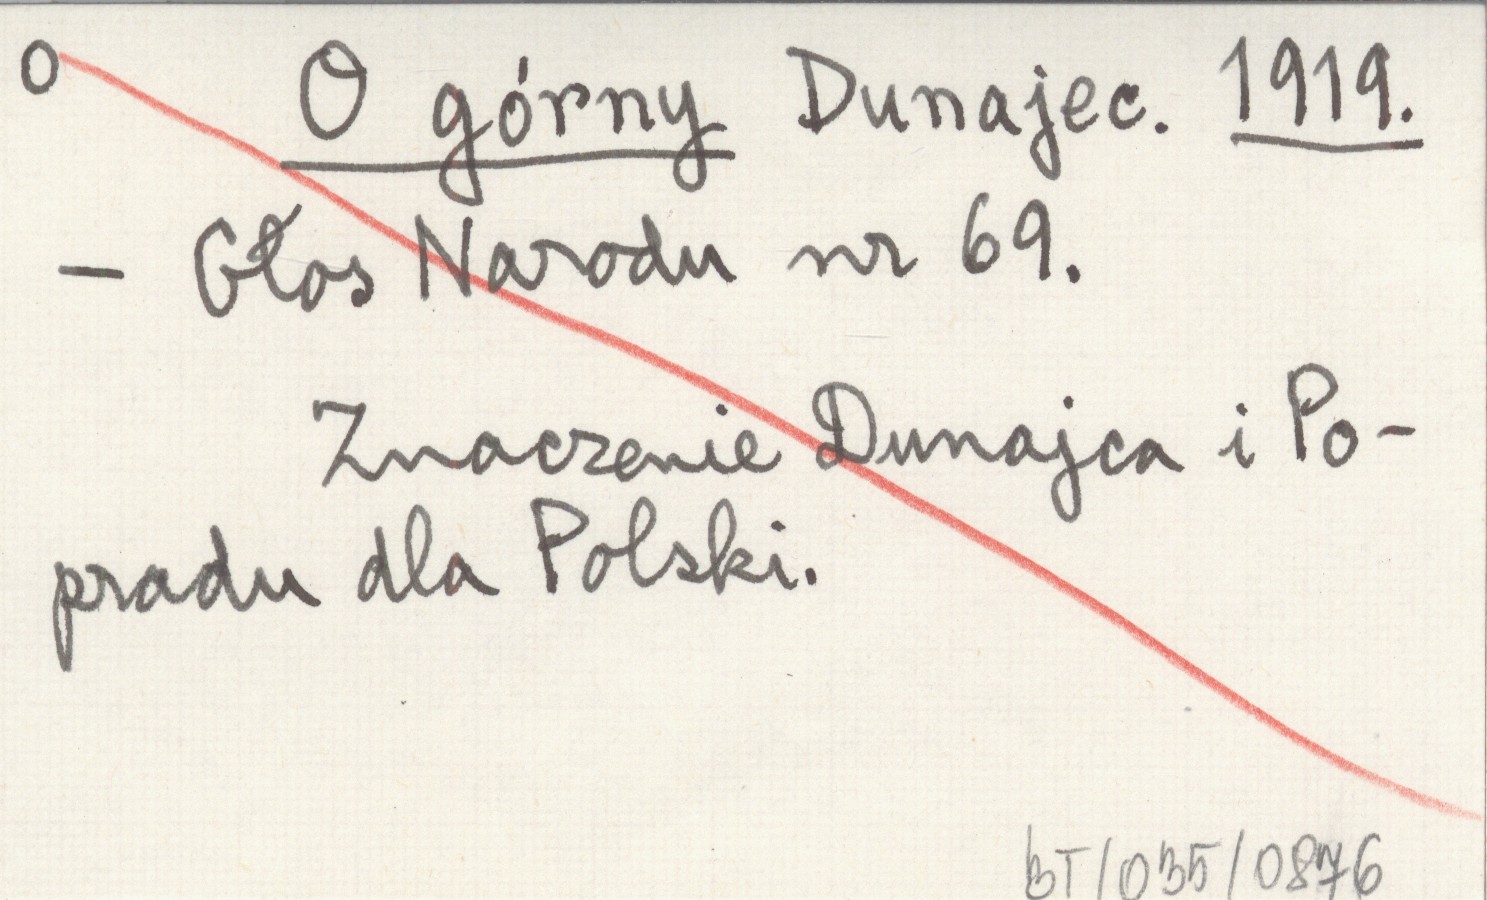 O O górny Dunajec. 1919.
- Głos Narodu nr 69.
Znaczenie Dunajca i Po-
pradu dla Polski.
BT/035/0876